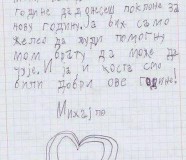 године да донесеш поклоне за
нову годину. Ја бих само
желео да људи помогну
мом брату да може да
чује. И ја и Коста смо
били добри ове године!
Михајло